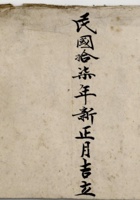 民國拾柒年新正月吉立